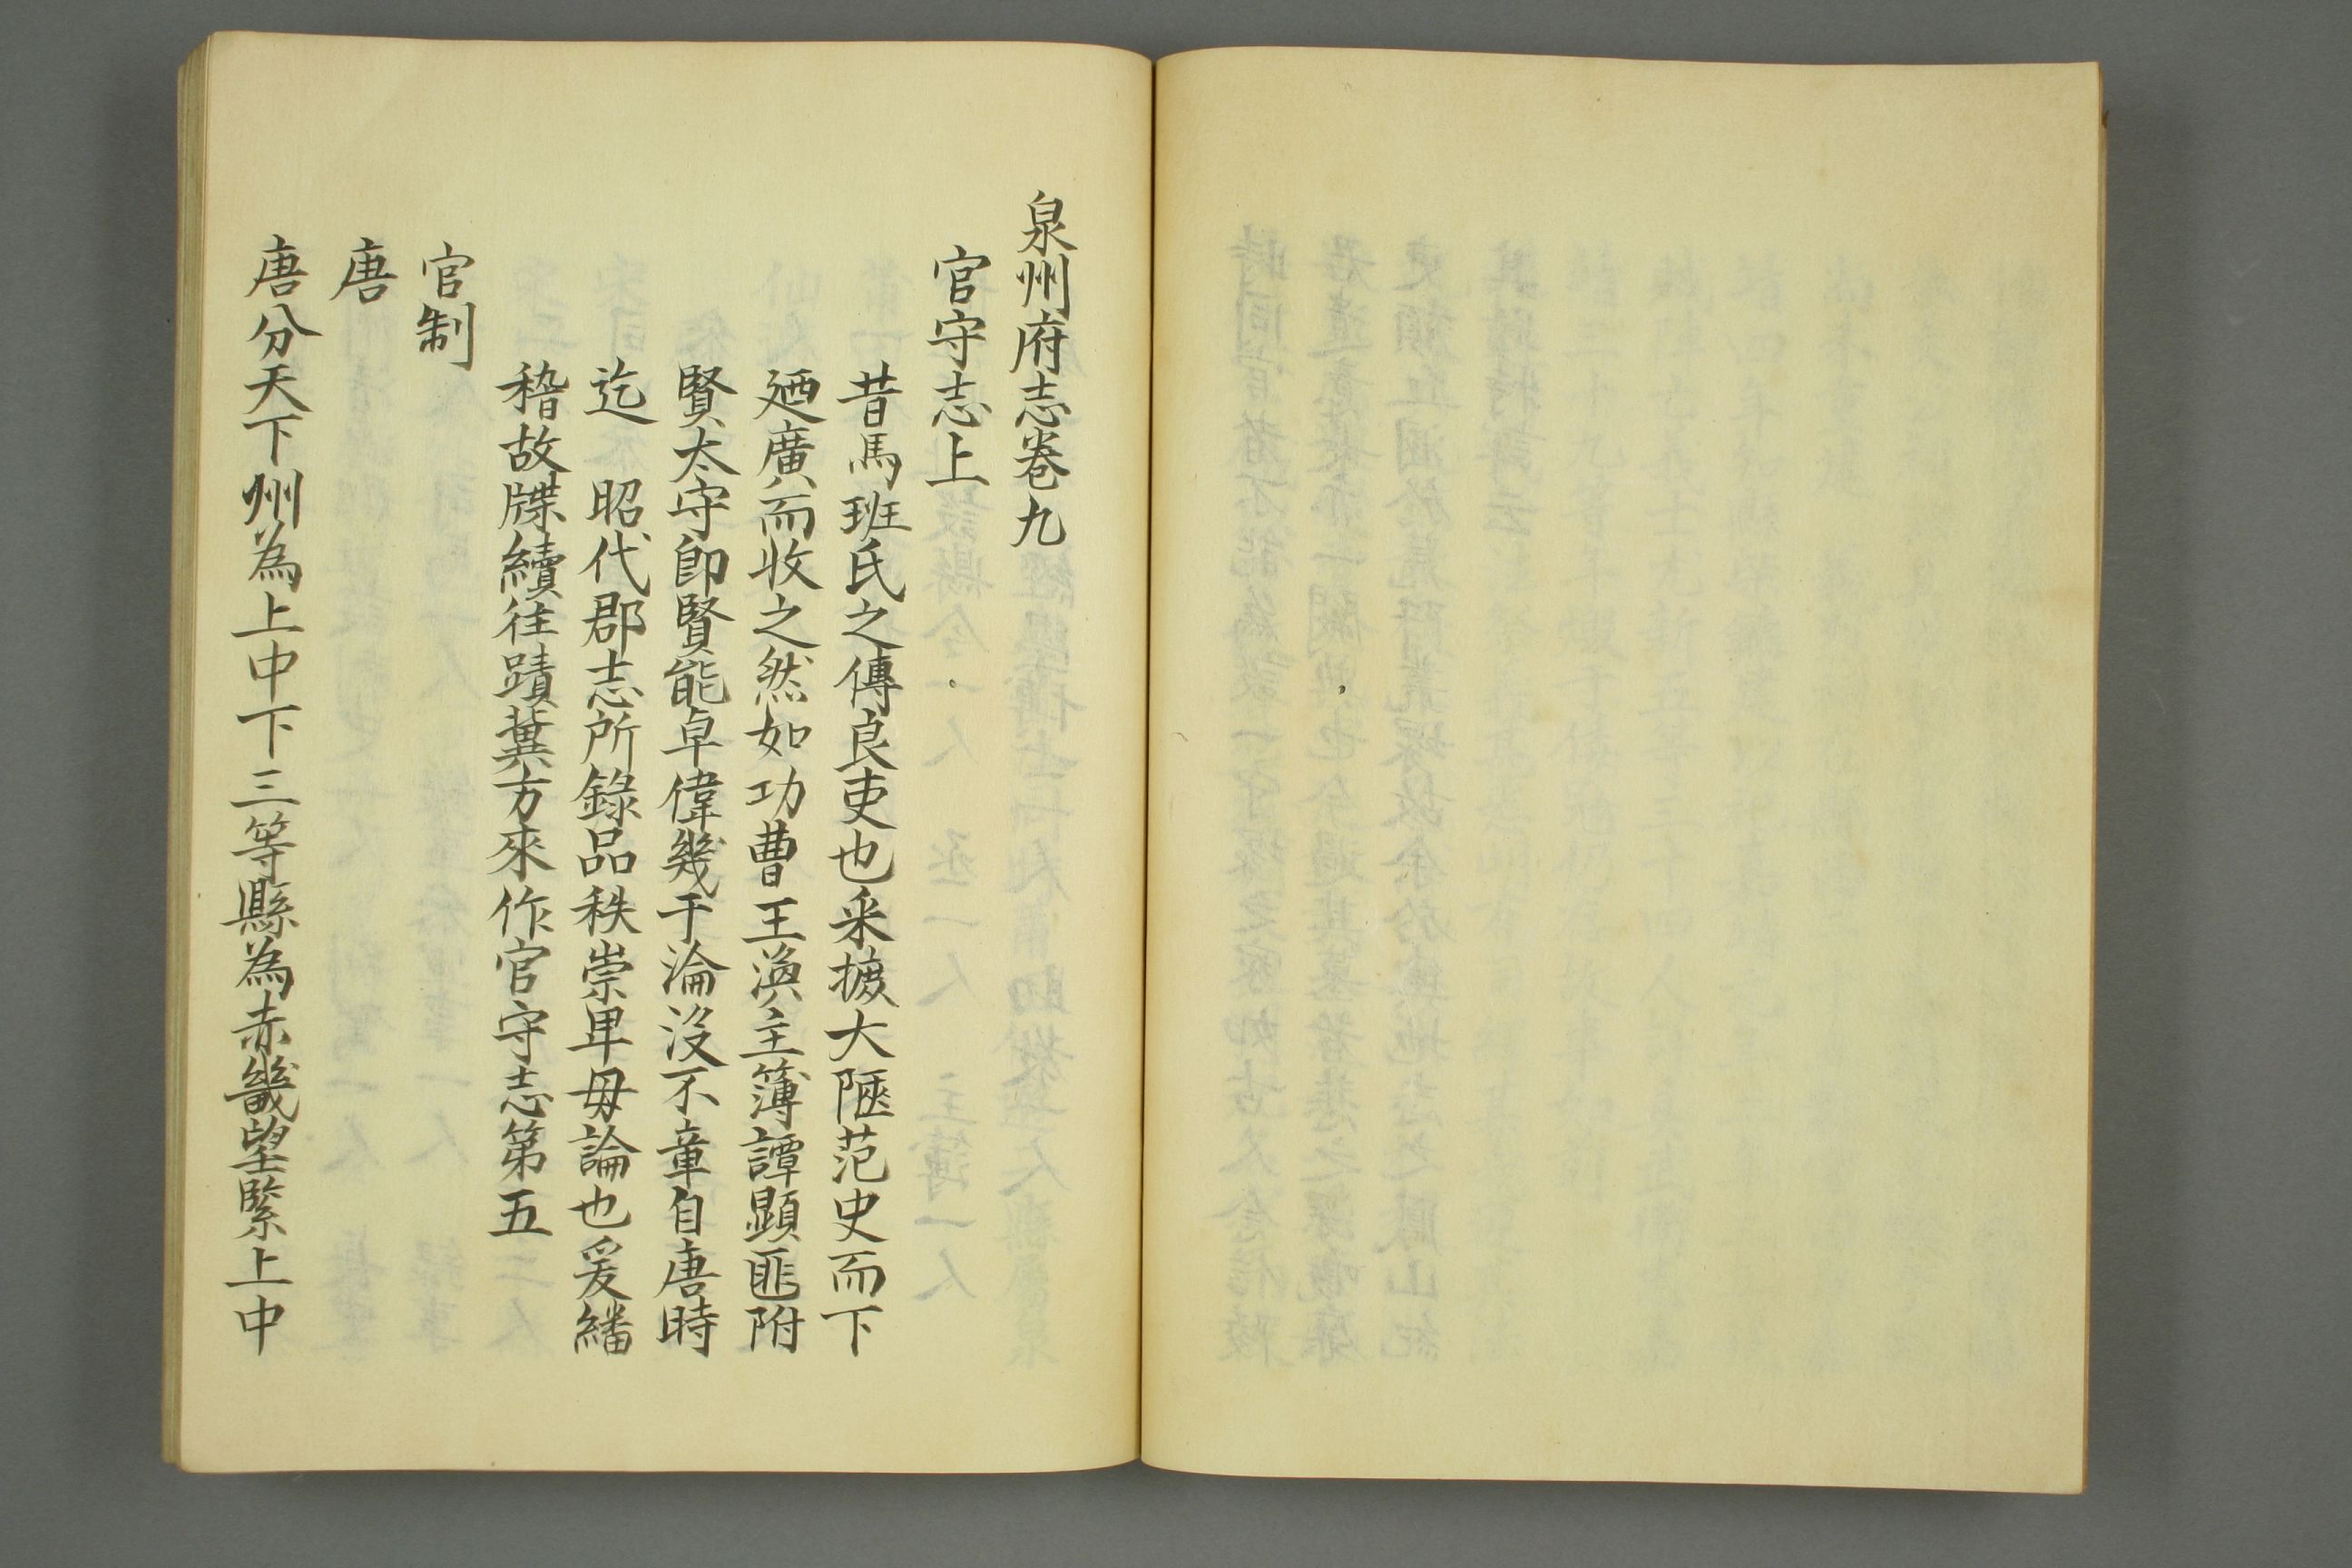 泉州府志卷九
官守志上
昔馬班氏之傳良吏也采摭大陿范史而下
廼廣而收之然如功曹王渙主簿譚顯匪附
賢太守卽賢能卓偉幾于淪沒不章自唐時
迄　昭代郡志所錄品秩崇卑毋論也爰繙
稽故牒續徃蹟冀方來作官守志第五
官制
唐
唐分天下州為上中下三等縣為赤畿望緊上中